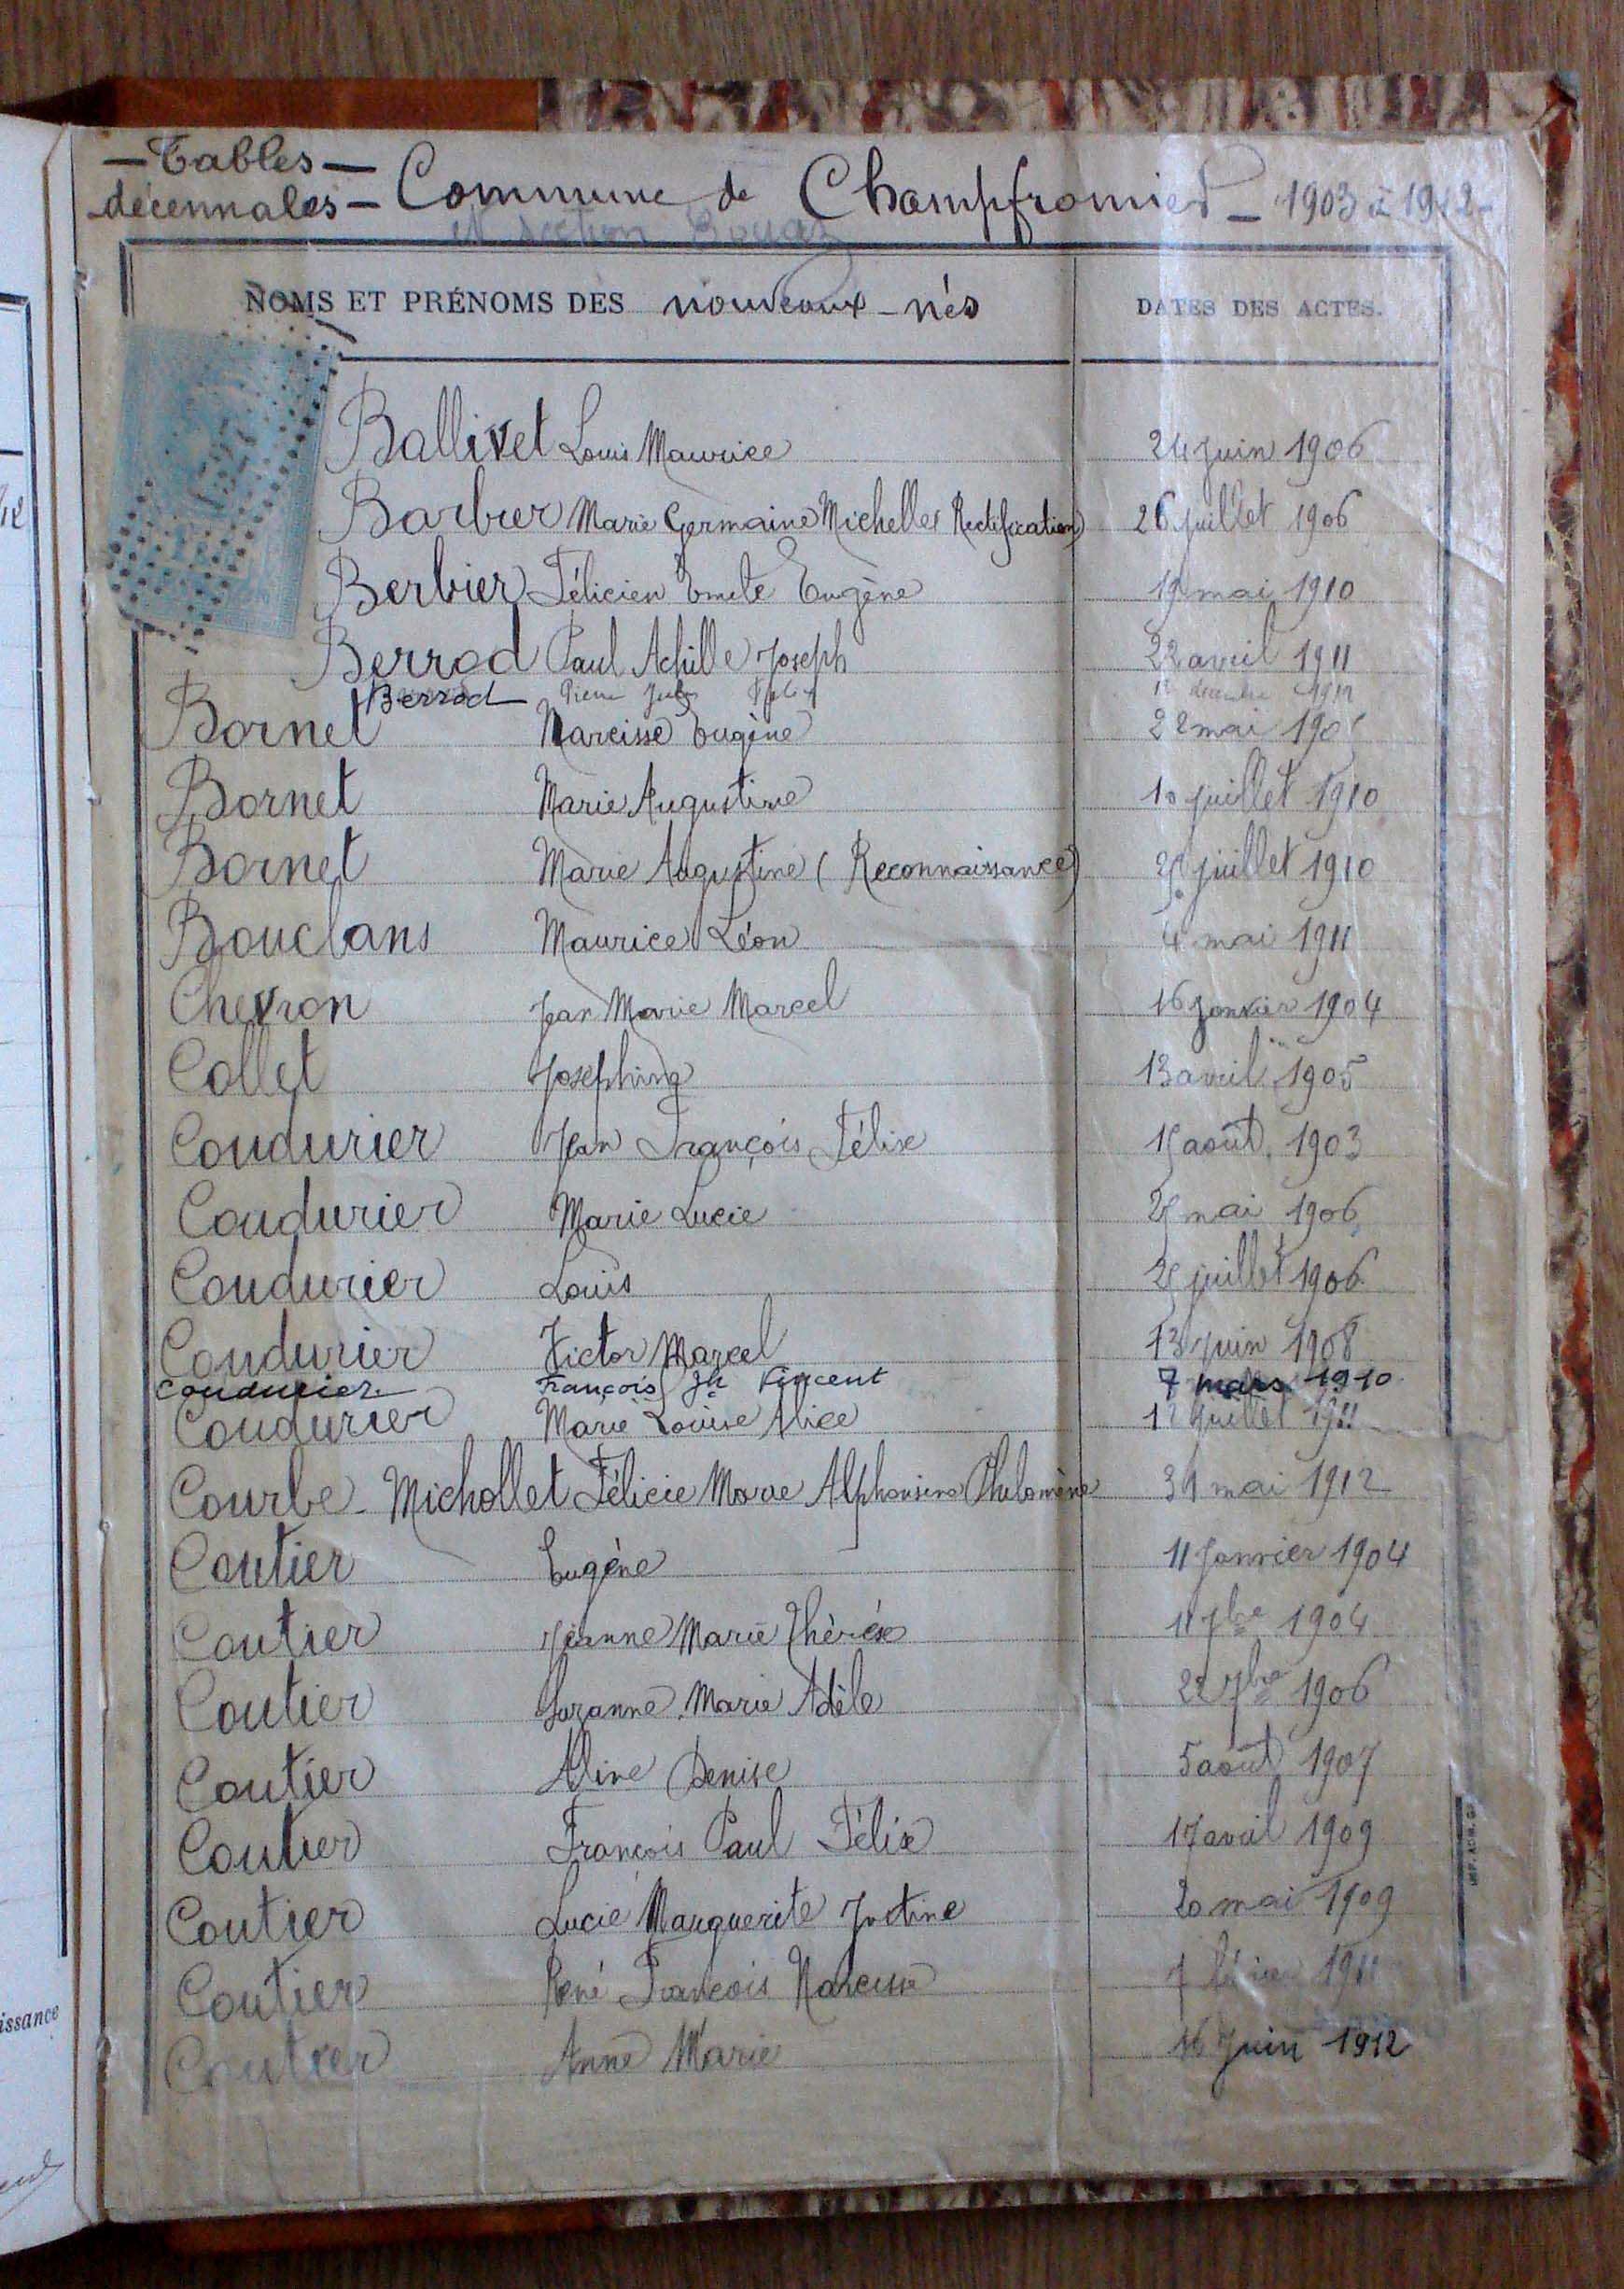 — Tables —
décennales — Commune de Champfromier — 1903 à 1912
et section
NOMS ET PRÉNOMS DES nouveaux-nés DATES DES ACTES.
Ballivet Louis Maurice 24 juin 1906
Barbier Marie Germaine Michelle (Rectification) 26 juillet 1906
Berbier Félicien Emile Eugène 19 mai 1910
Berrod Paul Achille Joseph 22 avril 1911
Berrod Pierre Jules
Bornet Narcisse Eugène 22 mai
Bornet Marie Augustine 10 juillet 1910
Bornet Marie Augustine (Reconnaissance) juillet 1910
Bouclans Maurice Léon 4 mai 1911
Chevron Jean Marie Marcel 16 Janvier 1904
Collet Joséphine 13 avril 1905
Coudurier Jean François Félix 15 août 1903
Coudurier Marie Lucie 25 mai 1906
Coudurier Louis 25 juillet 1906
Coudurier Victor Marcel 13 juin 1908
Coudurier François Jh Vincent 7 mars 1910
Coudurier Marie Louise Alice juillet 1911
Courbe-Michollet Félicie Marie Alphonsine Philomène 31 mai 1912
Coutier Eugène 11 Janvier 1904
Coutier Jeanne Marie Thérèse 11 7bre 1904
Coutier Suzanne Marie Adèle 22 7bre 1906
Coutier Aline Denise 5 août 1907
Coutier François Paul Félix 17 avril 1909
Coutier Lucie Marguerite Justine 20 mai 1909
Coutier René François Narcisse
Coutier Anne Marie 16 Juin 1912
issance